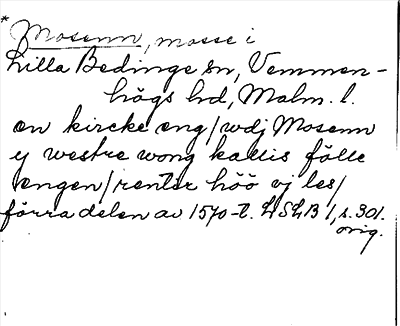 * Mosenn, mosse i
Lilla Bedinge sn, Vemmen-
högs hd, Malm. l.
en kircke eng/wdj Mosenn
ej westre wong kallis fölle
engen/rentir höö vj les/
förra delen av 1570-t. LSLB 1, s. 301.
orig.